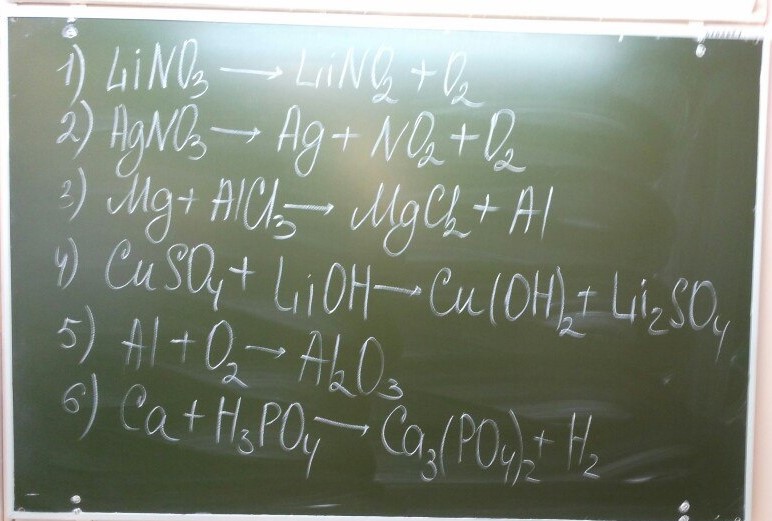 1) LiNO₃ → LiNO₂ + O₂
2) AgNO₃ → Ag + NO₂ + O₂
3) Mg + AlCl₃ → MgCl₂ + Al
4) CuSO₄ + LiOH → Cu(OH)₂ + Li₂SO₄
5) Al + O₂ → Al₂O₃
6) Ca + H₃PO₄ → Ca₃(PO₄)₂ + H₂